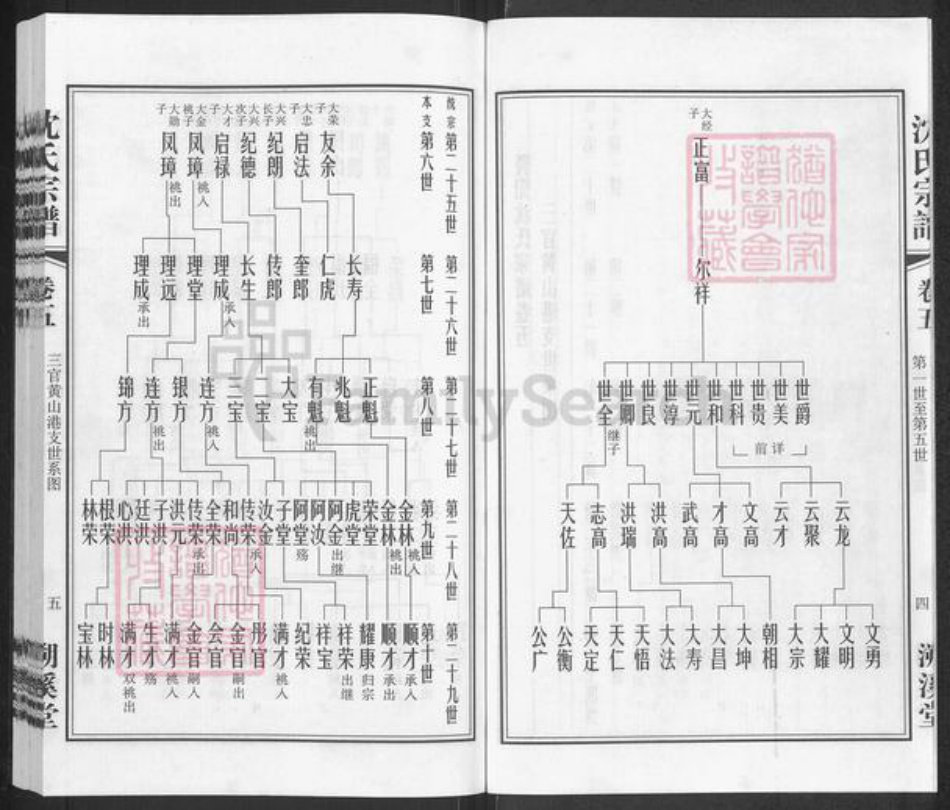 沈氏宗谱
卷五
第一世至第五世
四
溯溪堂
大经子
正富
尔祥
世爵
世美
世贵
世科
世和
世元
世淳
世良
世卿
世全
继子
前详
云龙
云聚
云才
文高
才高
武高
洪高
洪瑞
志高
天佐
文勇
文明
大耀
大宗
朝相
大坤
大昌
大寿
大法
天悟
天仁
天定
公衡
公广
统宗第二十五世 第二十六世 第二十七世 第二十八世 第二十九世
本支第六世 第七世 第八世 第九世 第十世
大荣子 友余
大忠子 启法
大兴长子 纪朗
大兴次子 纪德
大才子 启禄
大金祧子 凤璋 祧入
大勋子 凤璋 祧出
长寿
仁虎
奎郎
传郎
长生
理成 承入
理堂
理远
理成 承出
正魁
兆魁
有魁 祧出
大宝
二宝
三宝
连方 祧入
银方
连方 祧出
锦方
金林 祧入
金林 祧出
荣堂
虎堂
阿金 出继
阿汝
阿堂 殇
子堂
汝金
传荣 承入
和尚
全荣
传荣 承出
洪元
子洪
廷洪
心洪
根荣
林荣
顺才 承入
顺才 承出
耀康 归宗
祥荣 出继
祥宝
纪荣
满才 祧入
彤官
金官 嗣出
会官
金官 嗣入
满才 祧入
生才 殇
满才 双祧出
时林
宝林
沈氏宗谱
卷五
三官黄山港支世系图
五
溯溪堂
FamilySearch